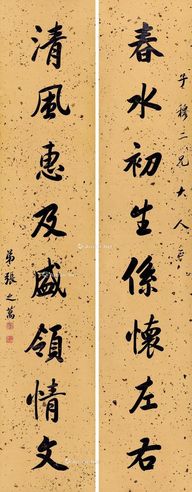 子穆二兄大人正
春水初生係懷左右
清風惠及盛領情文
弟張之萬